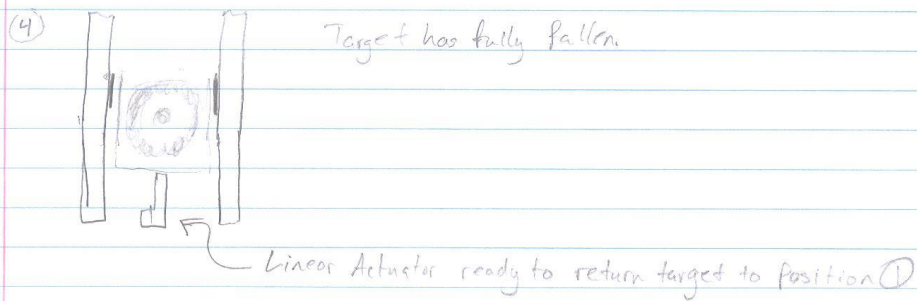 ④ Target has fully fallen.
Linear Actuator ready to return target to Position ①